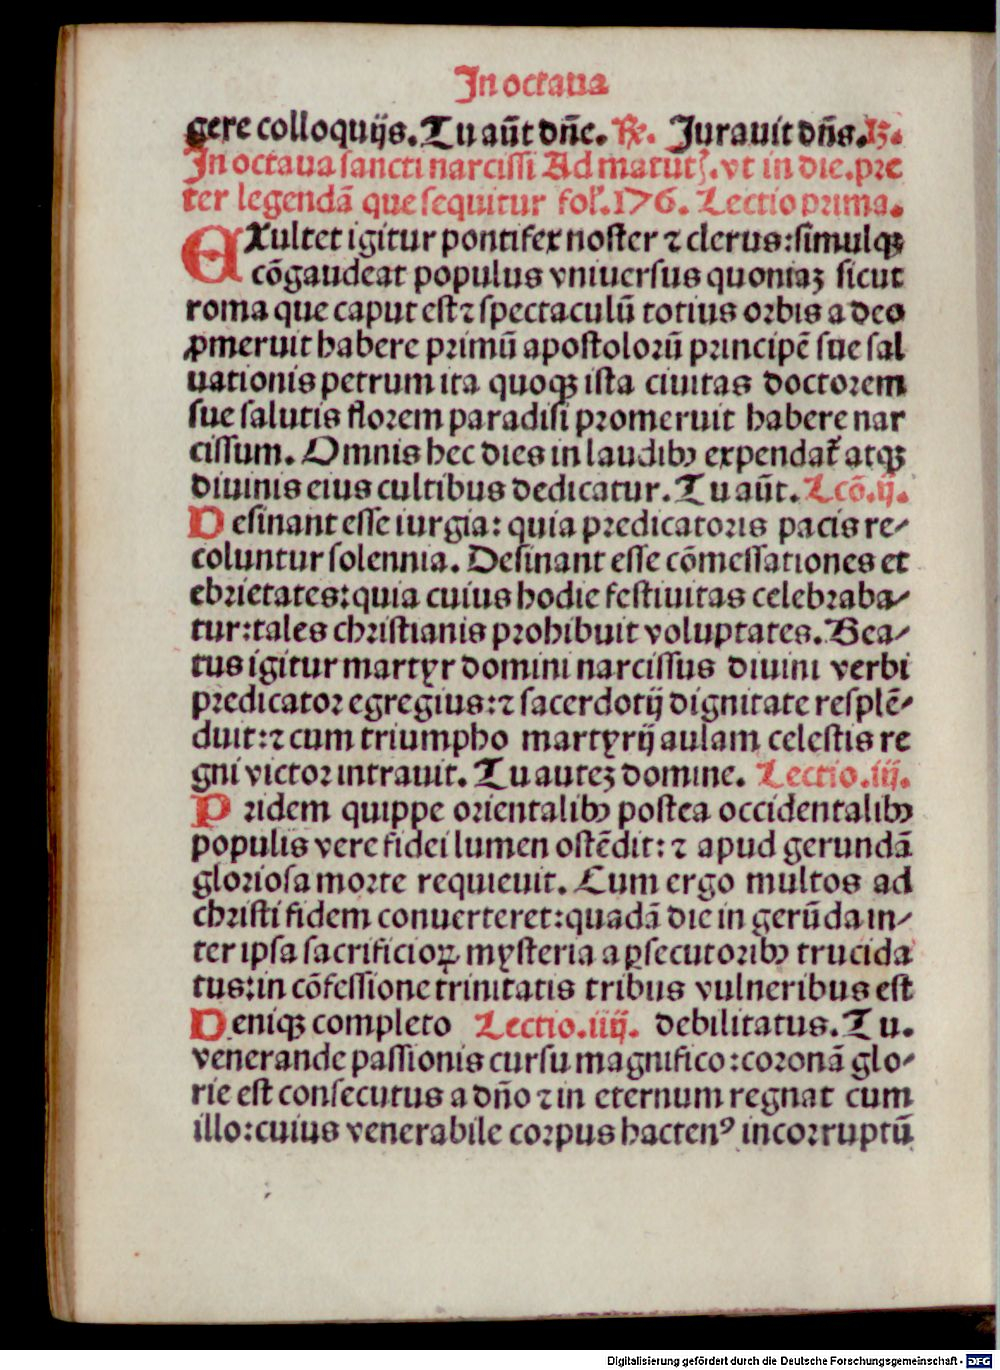 In octaua
gere colloquijs. Tu aūt dn̄e. ℟. Jurauit dn̄s. ℣.
In octaua sancti narcissi Ad matut̉. vt in die. pre
ter legendā que sequitur fol̉. 176. Lectio prima.
EXultet igitur pontifex noster ⁊ clerus: simulqꝫ
cōgaudeat populus vniuersus quoniaꝫ sicut
roma que caput est ⁊ spectaculū totius orbis a deo
ꝓmeruit habere primū apostolorū principē sue sal
uationis petrum ita quoqꝫ ista ciuitas doctorem
sue salutis florem paradisi promeruit habere nar
cissum. Omnis hec dies in laudibꝰ expendat̉ atqꝫ
diuinis eius cultibus dedicatur. Tu aūt. Lcō. ij.
Desinant esse iurgia: quia predicatoris pacis re-
coluntur solennia. Desinant esse cōmessationes et
ebrietates: quia cuius hodie festiuitas celebraba-
tur: tales christianis prohibuit voluptates. Bea-
tus igitur martyr domini narcissus diuini verbi
predicator egregius: ⁊ sacerdotij dignitate resplē-
duit: ⁊ cum triumpho martyrij aulam celestis re
gni victor intrauit. Tu auteꝫ domine. Lectio. iij.
Pridem quippe orientalibꝰ postea occidentalibꝰ
populis vere fidei lumen ostēdit: ⁊ apud gerundā
gloriosa morte requieuit. Cum ergo multos ad
christi fidem conuerteret: quadā die in gerūda in-
ter ipsa sacrificioꝝ mysteria a ꝑsecutoribꝰ trucida
tus: in cōfessione trinitatis tribus vulneribus est
Deniqꝫ completo Lectio. iiij. debilitatus. Tu.
venerande passionis cursu magnifico: coronā glo-
rie est consecutus a dn̄o ⁊ in eternum regnat cum
illo: cuius venerabile corpus hactenꝰ incorruptū
Digitalisierung gefördert durch die Deutsche Forschungsgemeinschaft - DFG